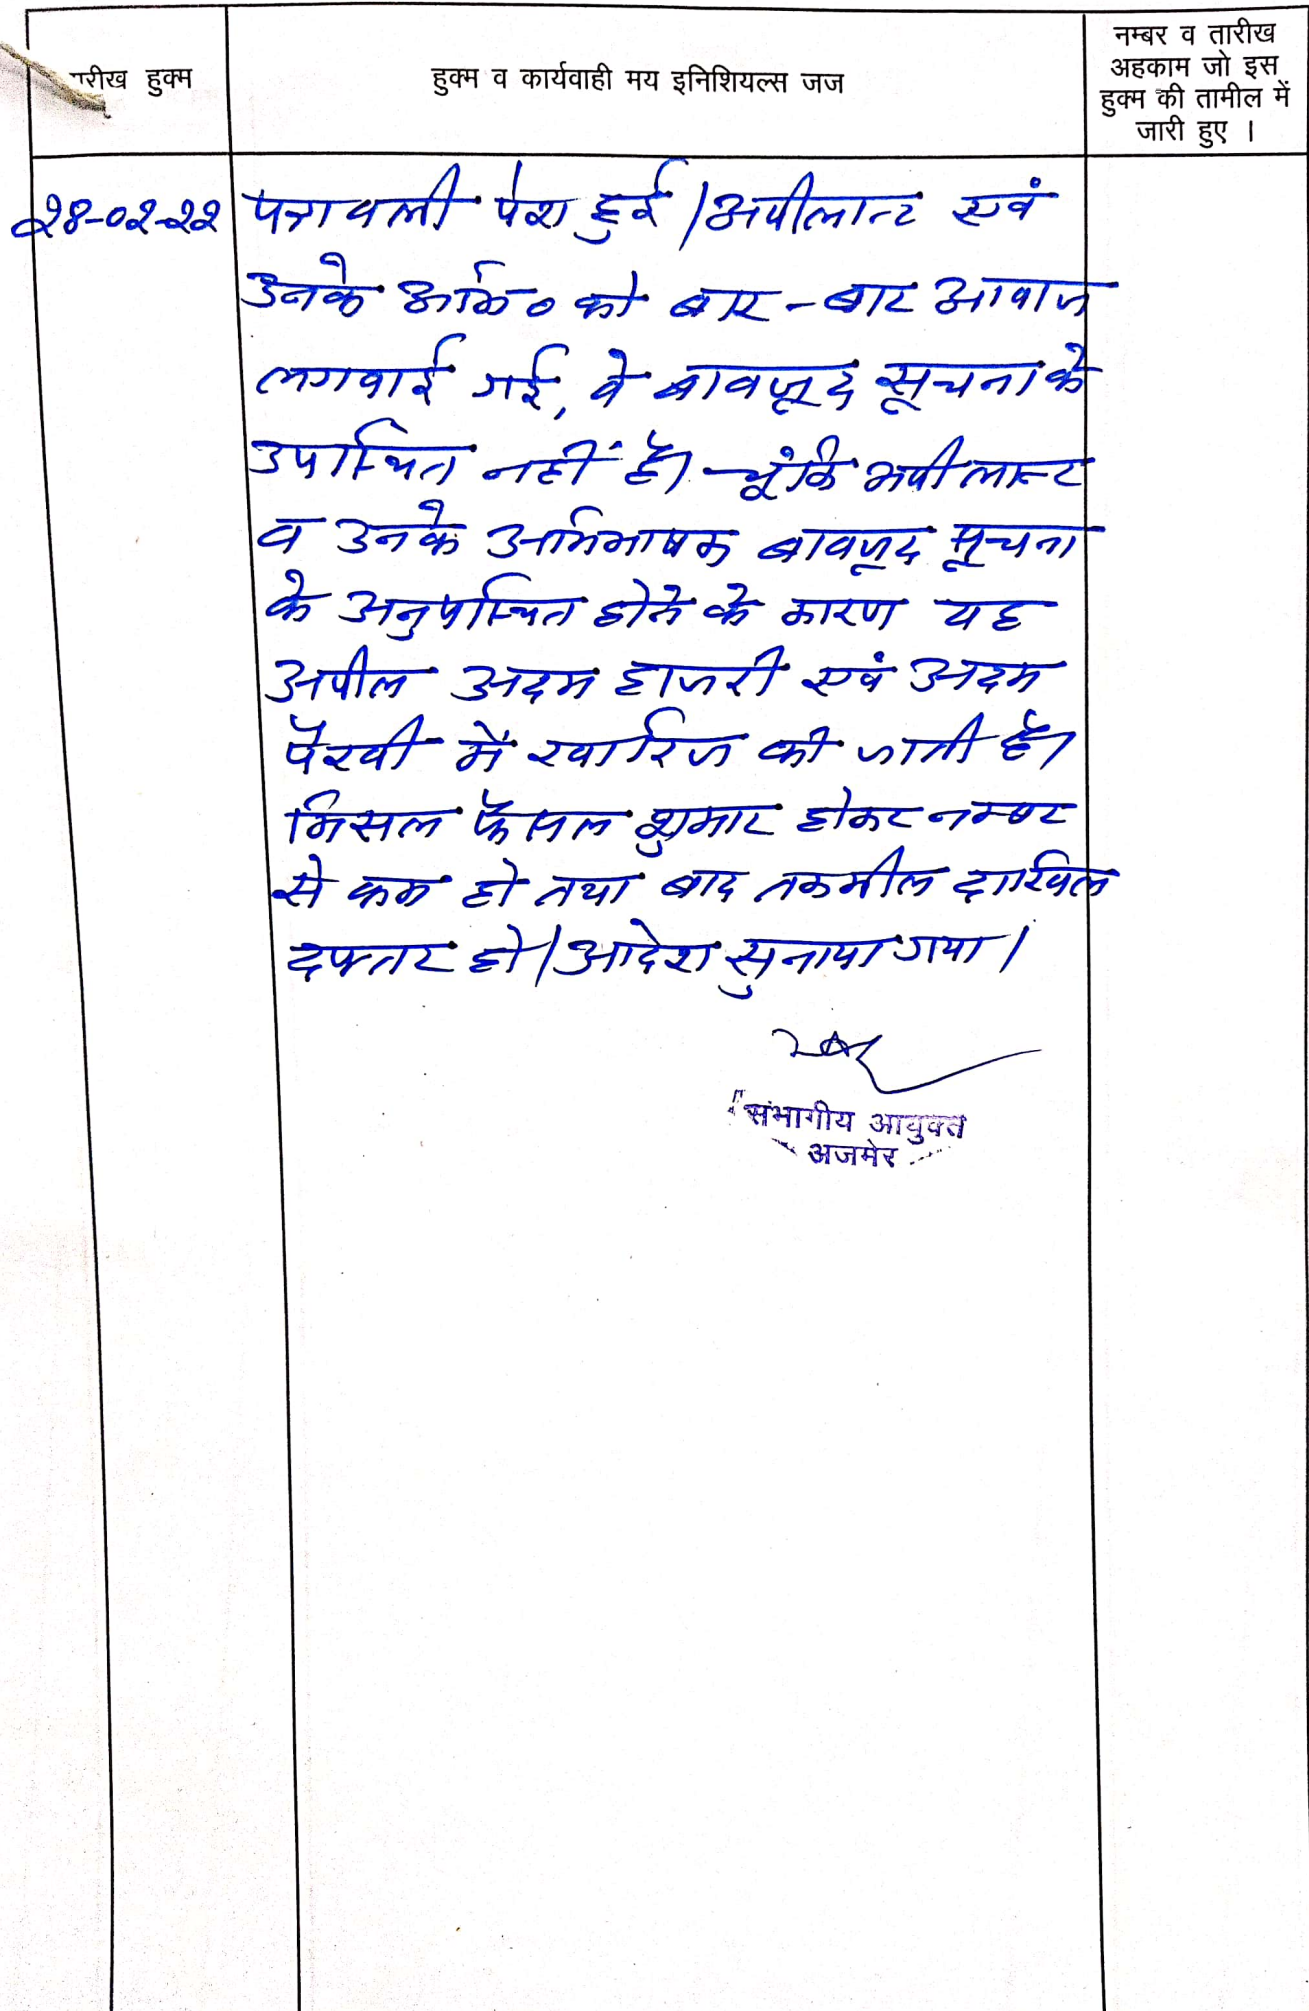 तारीख हुक्म
हुक्म व कार्यवाही मय इनिशियल्स जज
नम्बर व तारीख
अहकाम जो इस
हुक्म की तामील में
जारी हुए ।
28-02-22
पत्रावली पेश हुई । अपीलान्ट एवं
उनके अभि० को बार-बार आवाज
लगवाई गई, वे बावजूद सूचना के
उपस्थित नहीं है। चूंकि अपीलान्ट
व उनके अभिभाषक बावजूद सूचना
के अनुपस्थित होने के कारण यह
अपील अदम हाजरी एवं अदम
पैरवी में खारिज की जाती है।
मिसल फैसल शुमार होकर नम्बर
से कम हो तथा बाद तकमील दाखिल
दफ्तर हो । आदेश सुनाया गया ।
संभागीय आयुक्त
अजमेर